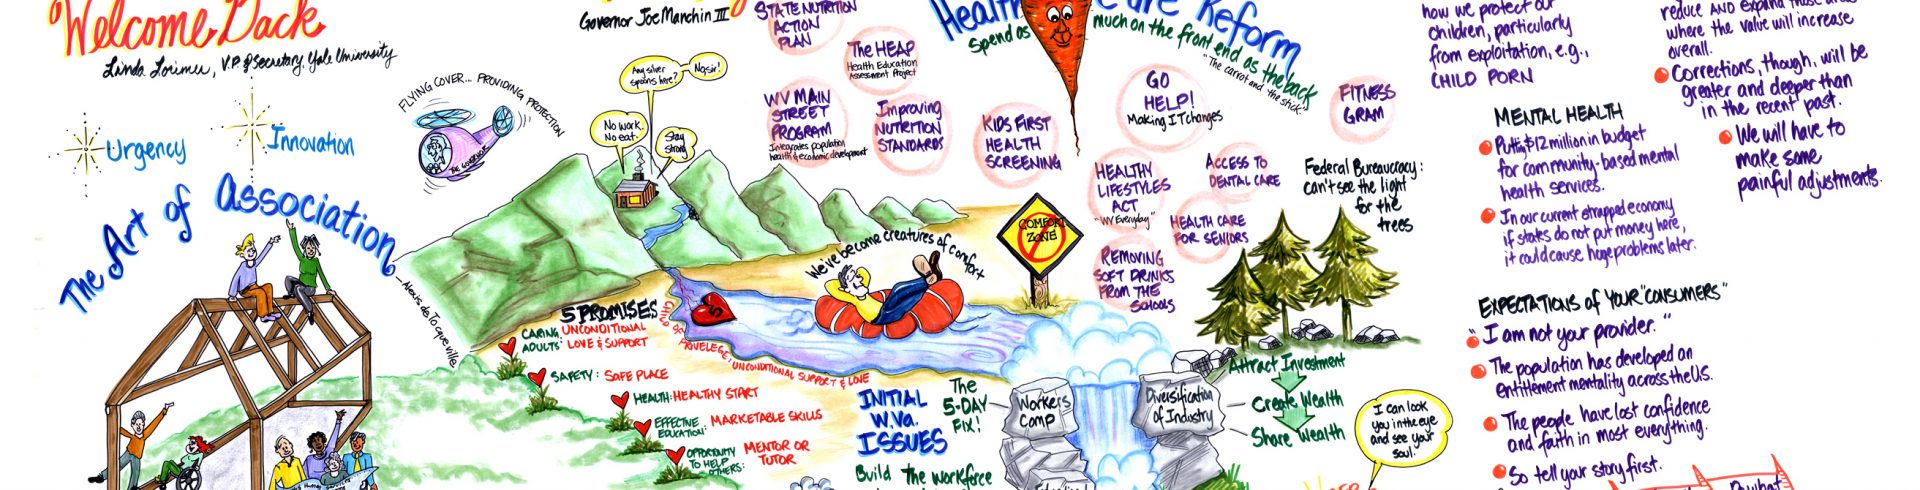 Welcome Back
Linda Lorimer, V.P. & Secretary, Yale University
Urgency
Innovation
The Art of Association
— Alexis de Tocqueville
FLYING COVER... PROVIDING PROTECTION
THE GOVERNOR
Governor Joe Manchin III
Any silver
spoons here?
No sir!
No work.
No eat.
Stay
strong
STATE NUTRITION
ACTION
PLAN
The HEAP
Health Education
Assessment Project
WV MAIN
STREET
PROGRAM
Integrates population
health & economic development
Improving
NUTRITION
STANDARDS
KIDS FIRST
HEALTH
SCREENING
Health Care Reform
Spend as much on the front end as the back
"The carrot and the stick"
GO
HELP!
Making IT changes
FITNESS
GRAM
HEALTHY
LIFESTYLES
ACT
"WV Everyday"
ACCESS TO
DENTAL CARE
HEALTH CARE
FOR SENIORS
REMOVING
SOFT DRINKS
FROM THE
SCHOOLS
Federal Bureaucracy:
can't see the light
for the
trees
COMFORT
ZONE
We've become creatures of comfort
5 PROMISES
CARING
ADULTS: UNCONDITIONAL
LOVE & SUPPORT
SAFETY: SAFE PLACE
HEALTH: HEALTHY START
EFFECTIVE
EDUCATION: MARKETABLE SKILLS
OPPORTUNITY
TO HELP
OTHERS: MENTOR OR
TUTOR
5
PRIVELEGE, UNCONDITIONAL SUPPORT & LOVE
INITIAL
W.Va.
ISSUES
The
5-DAY
FIX!
Build the workforce
Workers
Comp
Diversification
of Industry
Attract Investment
Create Wealth
Share Wealth
I can look
you in the eye
and see your
soul.
how we protect our
children, particularly
from exploitation, e.g.,
CHILD PORN
MENTAL HEALTH
Putting $12 million in budget
for community-based mental
health services.
In our current strapped economy
if states do not put money here,
it could cause huge problems later.
EXPECTATIONS of YOUR "CONSUMERS"
"I am not your provider."
The population has developed an
entitlement mentality across the U.S.
The people have lost confidence
and faith in most everything.
So tell your story first.
reduce AND expand those areas
where the value will increase
overall.
Corrections, though, will be
greater and deeper than
in the recent past.
We will have to
make some
painful adjustments.